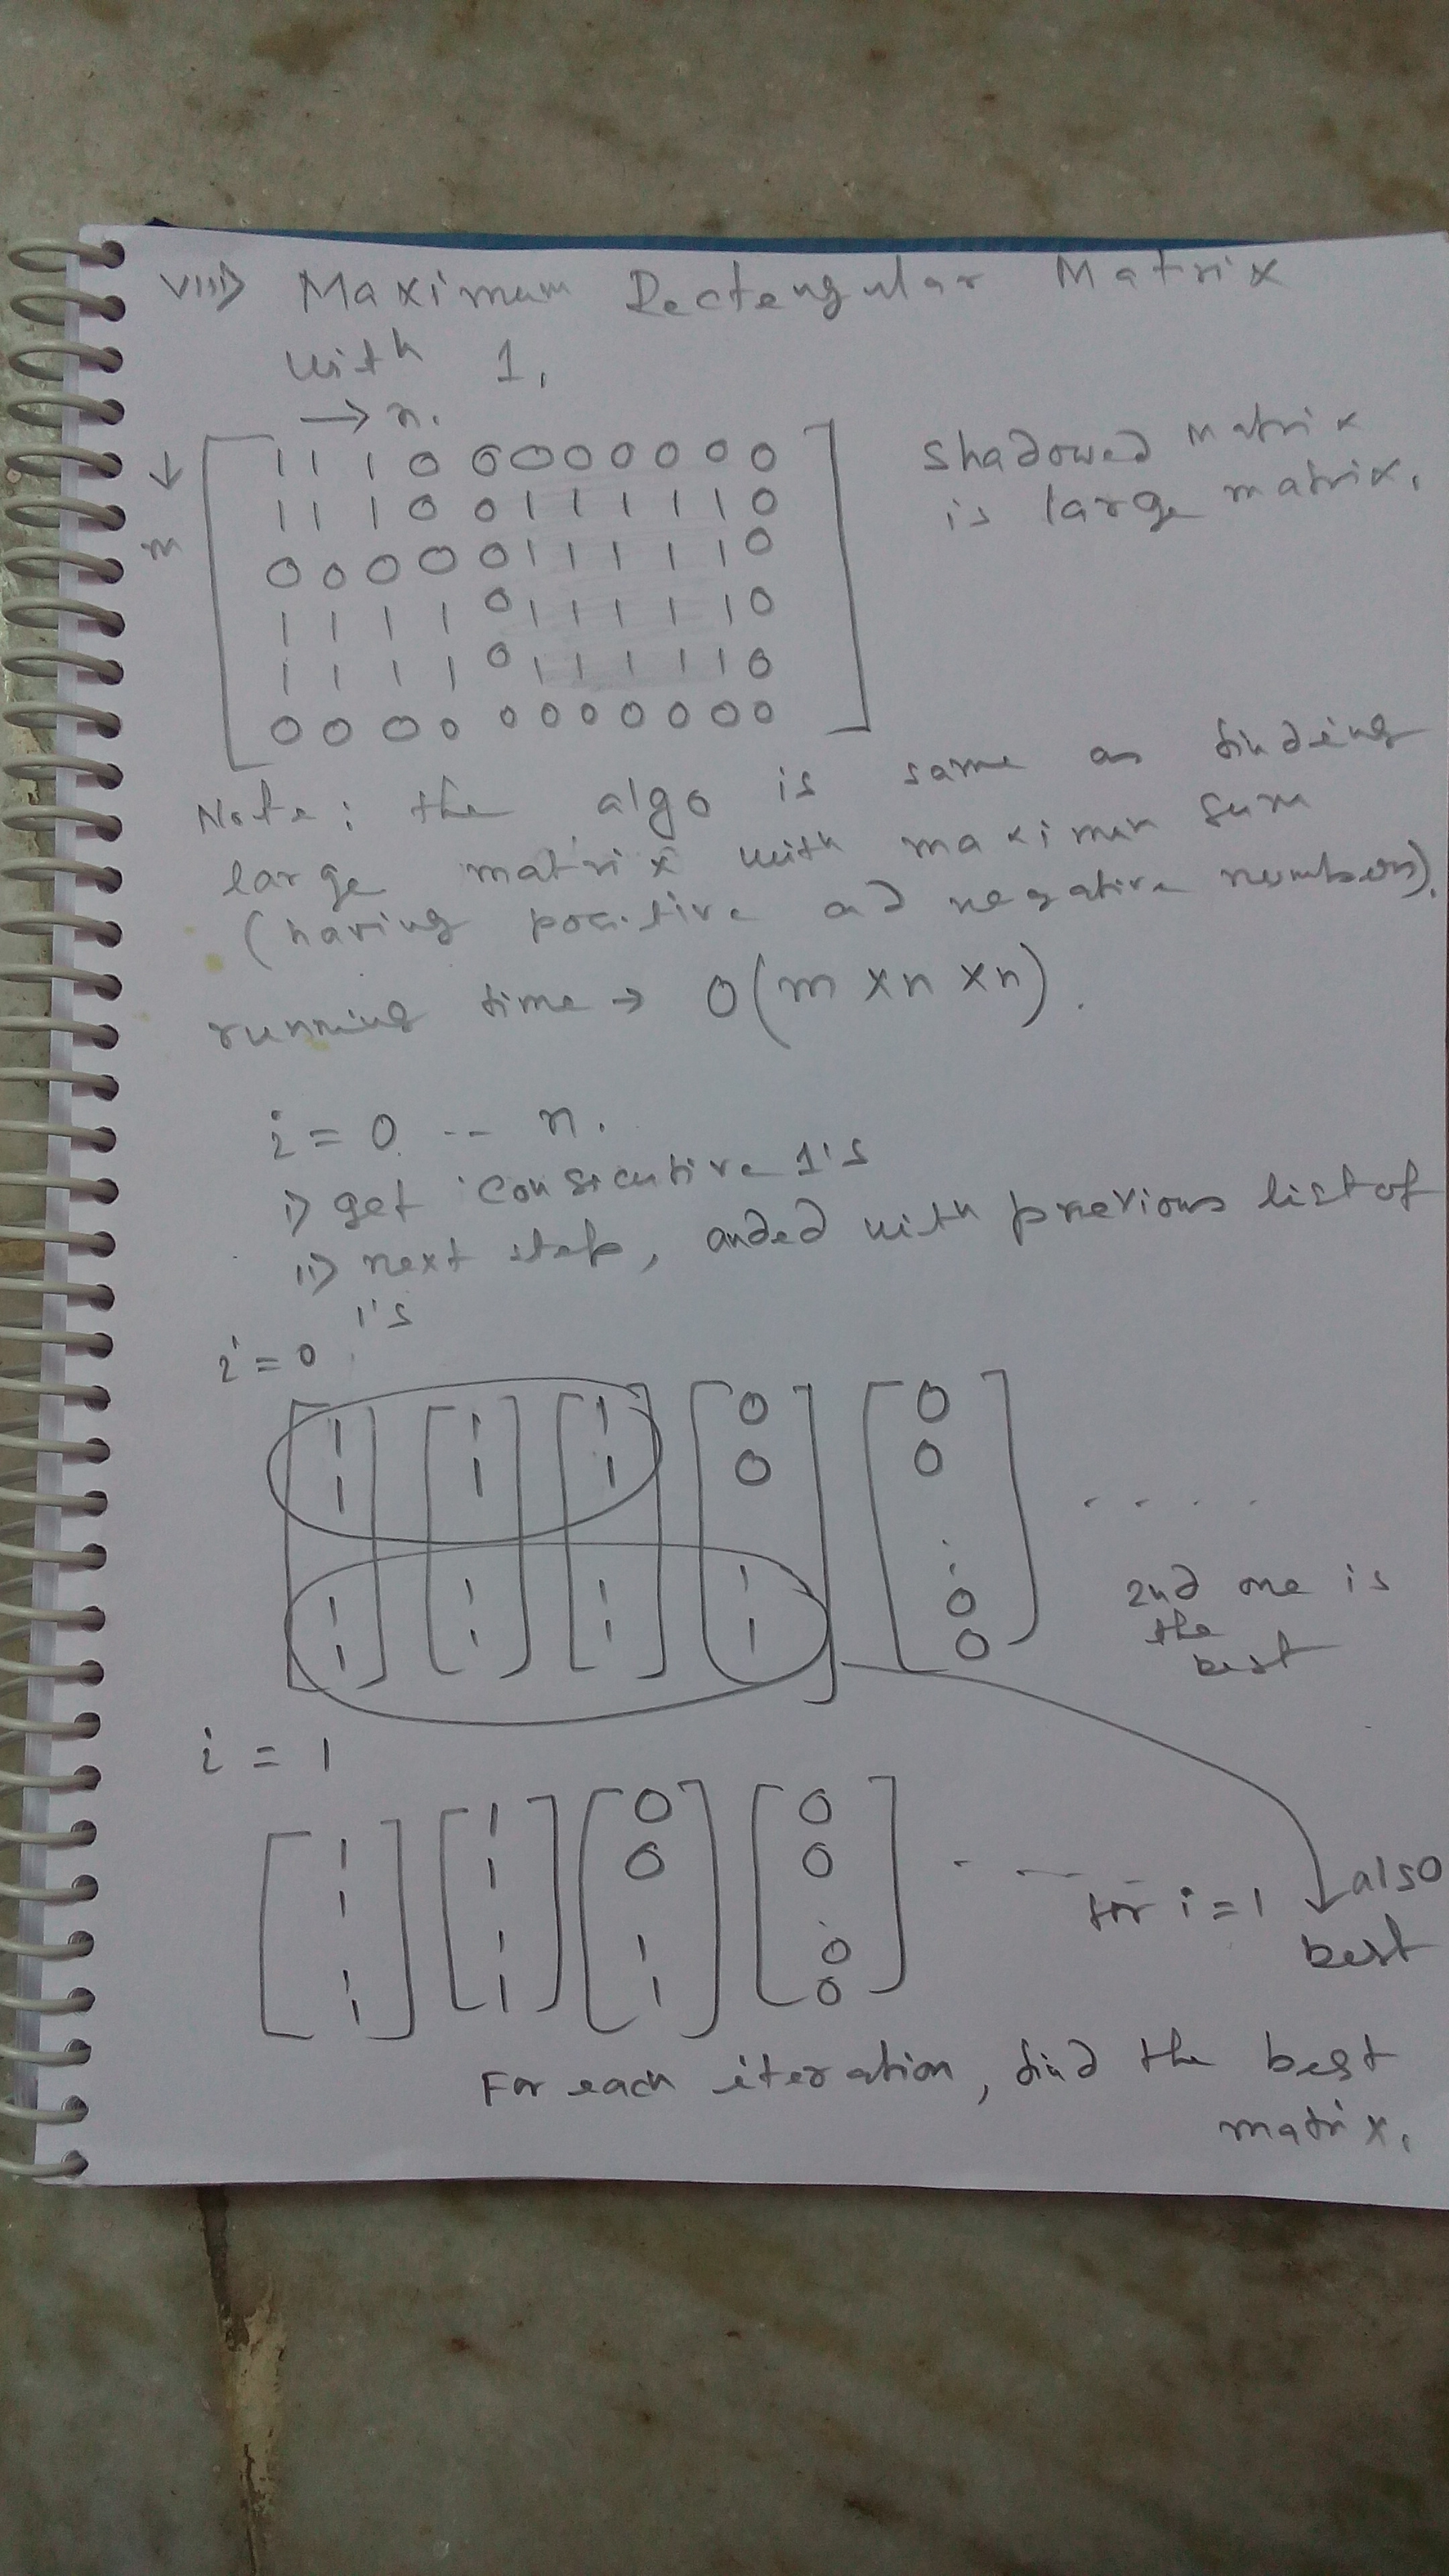 viii) Maximum Rectengular Matrix
with 1.
→ n.
↓
m
1 1 1 0 0 0 0 0 0 0 0
1 1 1 0 0 1 1 1 1 1 0
0 0 0 0 0 1 1 1 1 1 0
1 1 1 1 0 1 1 1 1 1 0
1 1 1 1 0 1 1 1 1 1 0
0 0 0 0 0 0 0 0 0 0 0
shadowed matrix
is large matrix.
Note: the algo is same as finding
large matrix with maximum sum
(having positive ad negative numbers).
running time → O(m × n × n).
i = 0 -- n.
i) get consicutive 1's
ii) next step, anded with previous list of
1's
i = 0
1 1 1 0 0
1 1 1 0 0 . . . .
1 1 1 1 0
1 1 1 1 0
2nd one is
the
best
i = 1
1 1 0 0
1 1 0 0
1 1 1 0
1 1 1 0
for i = 1
also
best
For each iteration, find the best
matrix.